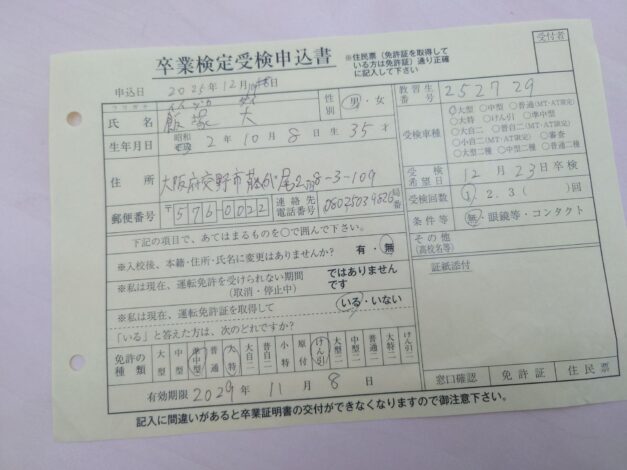 卒業検定受検申込書
※住民票(免許証を取得して
いる方は免許証)通り正確
に記入して下さい
受付者
申込日 2025年12月 日
フリガナ イイヅカ ダイ
氏名 飯塚 大
性別 男・女
教習生番号 252729
生年月日 昭和 2年10月8日生 35才
受検車種
○大型 ○中型 ○普通(MT・AT限定)
○大特 ○けん引 ○準中型
○大自二 ○普自二(MT・AT限定)
○小自二(MT・AT限定) ○審査
○大型二種 ○中型二種 ○普通二種
住所 大阪府交野市 尾 -3-109
受検希望日 12月23日卒検
郵便番号 〒576-0022
連絡先電話番号 08025039826 局番
受検回数 1.2.3.( )回
下記の項目で、あてはまるものを○で囲んで下さい。
条件等 無・眼鏡等・コンタクト
※入校後、本籍・住所・氏名に変更はありませんか? 有・無
その他(高校名等)
※私は現在、運転免許を受けられない期間(取消・停止中) ではありません です
証紙添付
※私は現在、運転免許証を取得して いる・いない
「いる」と答えた方は、次のどれですか?
免許の種類 大型 中型 準中型 普通 大特 大自二 普自二 小特 原付 けん引 大型二 中型二 普通二 大特二 けん引二
有効期限 2029年11月8日
窓口確認 免許証 住民票
記入に間違いがあると卒業証明書の交付ができなくなりますので御注意下さい。